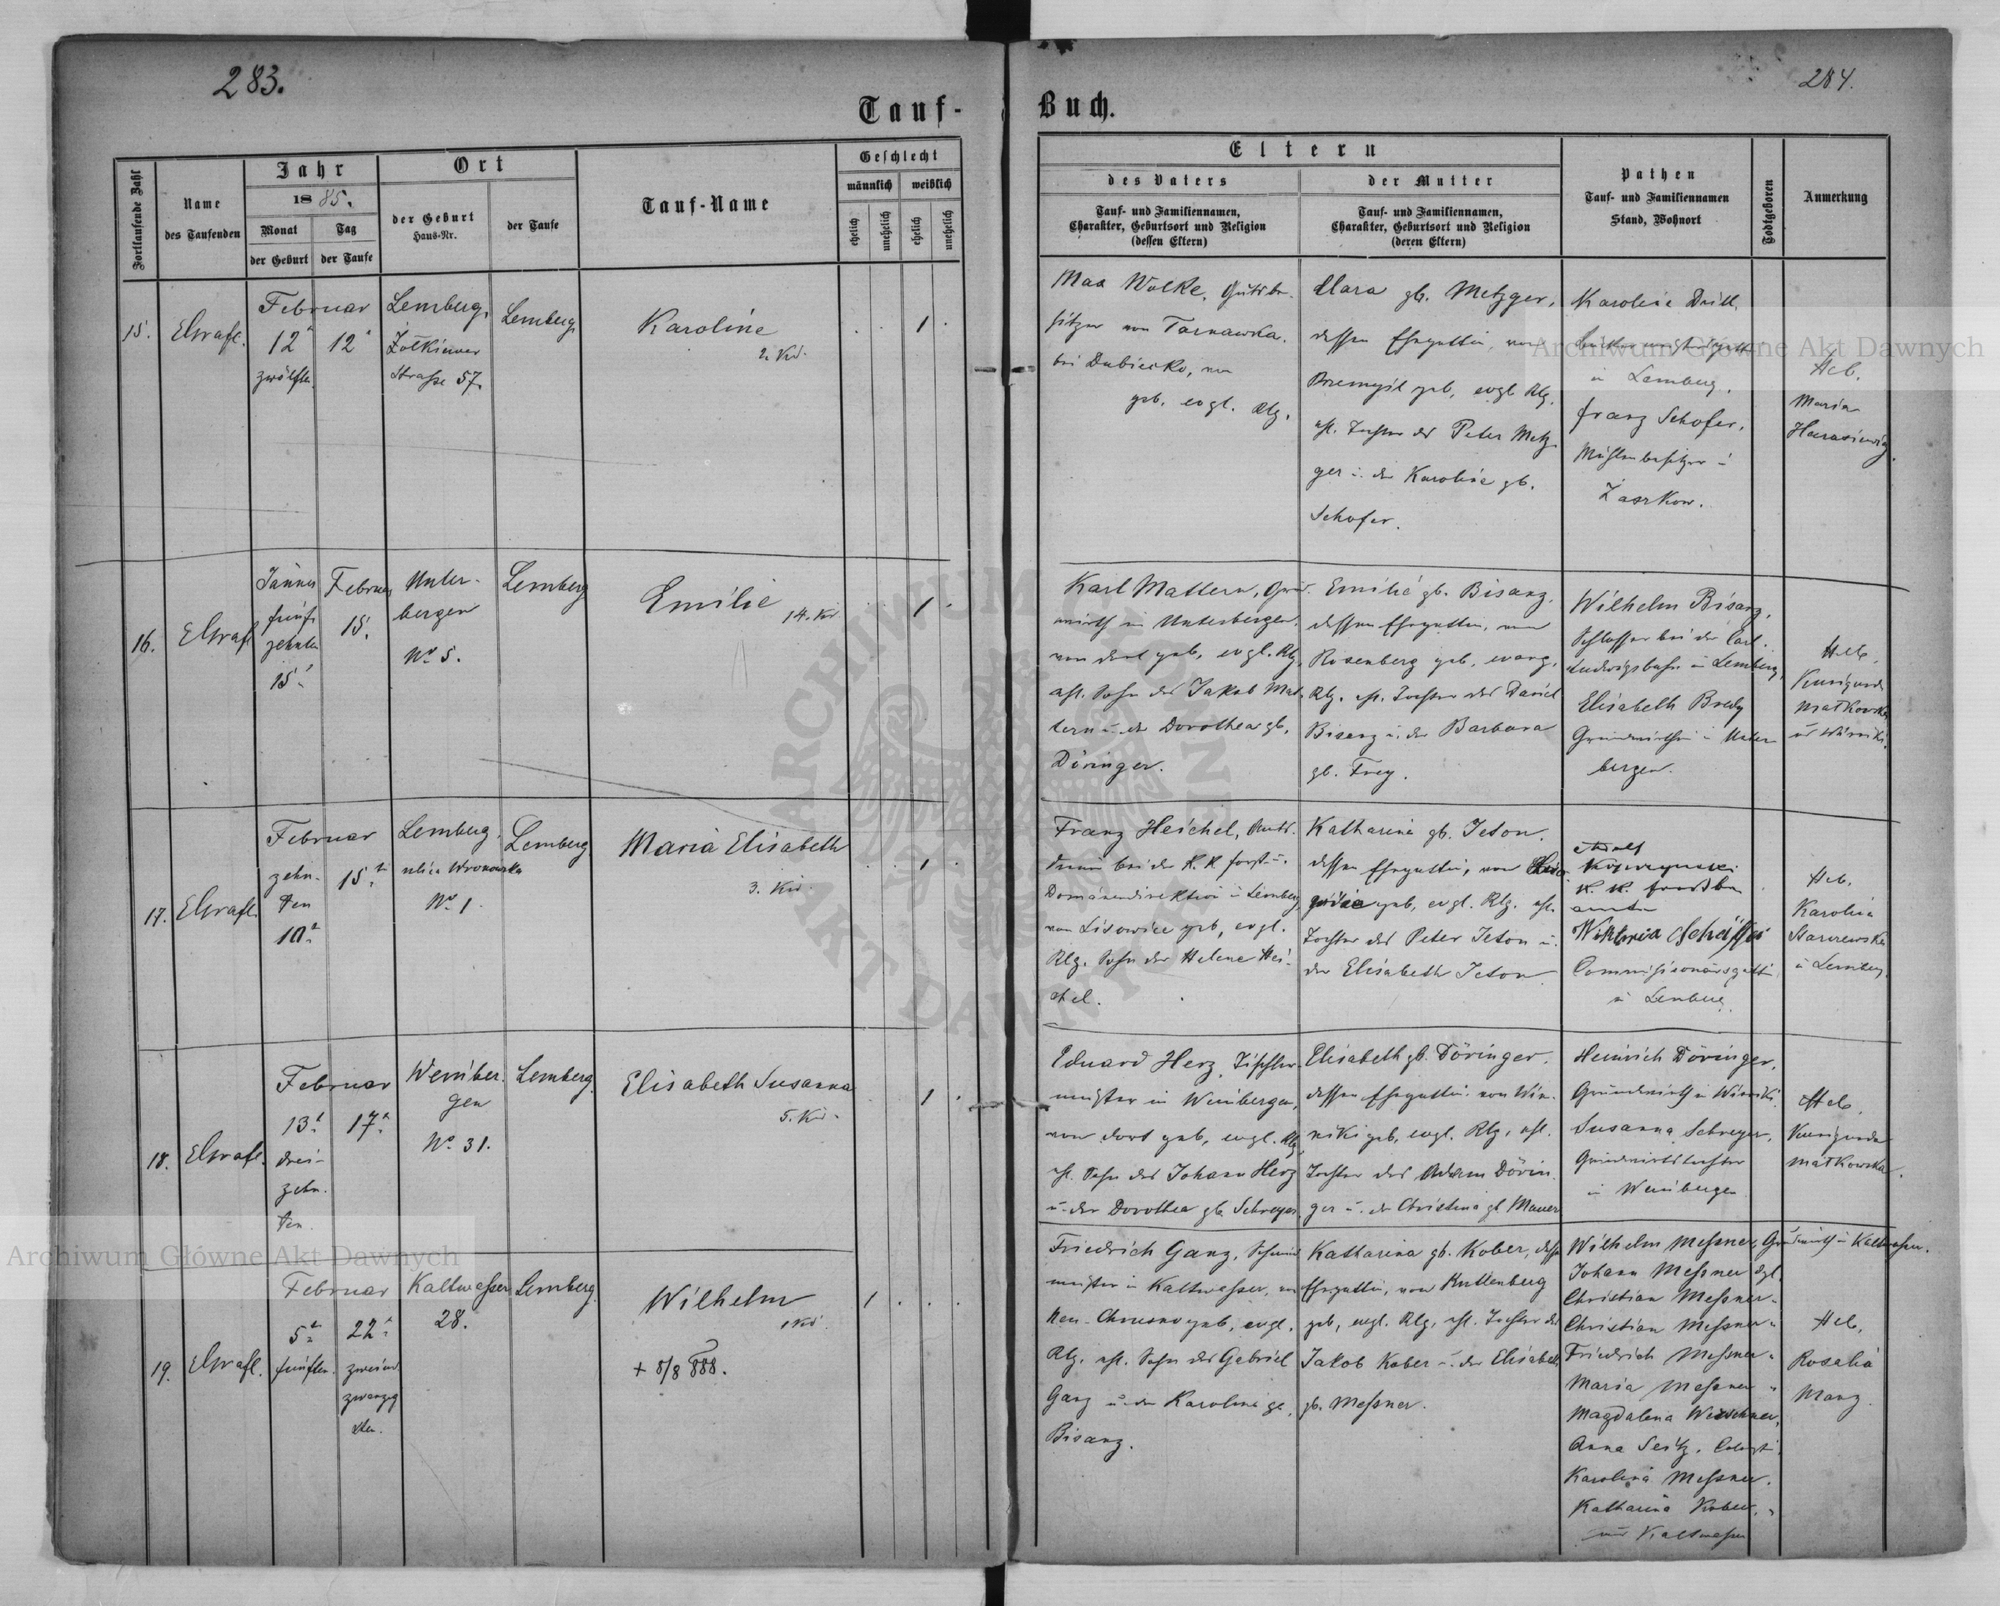 283.
284.
Tauf-
Buch.
Fortlaufende Zahl
Name
des Taufenden
Jahr
1885.
Monat
der Geburt
Tag
der Taufe
Ort
der Geburt
Haus-Nr.
der Taufe
Tauf-Name
Geschlecht
männlich
weiblich
ehelich
unehelich
ehelich
unehelich
Eltern
des Vaters
Tauf- und Familiennamen,
Charakter, Geburtsort und Religion
(dessen Eltern)
der Mutter
Tauf- und Familiennamen,
Charakter, Geburtsort und Religion
(deren Eltern)
Pathen
Tauf- und Familiennamen
Stand, Wohnort
Todtgeboren
Anmerkung
15.
Februar
12
zwölften
12
Lemberg,
Żołkiewer
Straße 57.
Lemberg
Karoline
2. Kd.
1
Max Wolke, Gutsbe-
sitzer von Tarnawka
bei Dubiecko, von
geb. evgl. Rlg.
Clara gb. Metzger,
dessen Ehegattin, von
Przemysl geb, evgl. Rlg.
ehl. Tochter des Peter Metz-
ger u. der Karoline gb.
Schofer.
Karoline
in Lemberg.
Franz Schofer,
Mühlenbesitzer in
Zaszkow.
Heb.
Maria
Harasiewicz
16.
Jänner
fünf-
zehnten
15
Februar
15.
Unter-
bergen
No 5.
Lemberg
Emilie
14. Kd
1
Karl Mattern, Grund-
wirth in Unterbergen,
von dort geb, evgl. Rlg,
ehl. Sohn des Jakob Mat-
tern u. der Dorothea gb.
Döringer.
Emilie gb. Bisanz,
dessen Ehegattin, von
Rosenberg geb, evang.
Rlg. ehl. Tochter des Daniel
Bisanz u. der Barbara
gb. Frey.
Wilhelm Bisanz,
Schlosser bei der Carl-
Ludwigsbahn in Lemberg,
Elisabeth Bredy
Grundwirthin in Unter-
bergen.
Heb.
Kunigunde
Matkowska
in Winniki.
17.
Februar
zehn-
ten
10
15
Lemberg,
ulica Wronowska
No 1.
Lemberg
Maria Elisabeth
3. Kd.
1
Franz Heichel, Amts-
diener bei der K. K. Forst u.
Domänendirektion in Lemberg
von Lisowice geb, evgl.
Rlg. Sohn der Helene Hei-
chel.
Katharina gb. Jeton,
dessen Ehegattin, von
geb, evgl. Rlg. ehl.
Tochter des Peter Jeton u.
der Elisabeth Jeton.
Adolf
K. K. Forstbe-
amter
Wiktoria Schäffer
Commissionärsgattin
in Lemberg.
Heb.
Karolina
in Lemberg.
18.
Februar
13
drei-
zehn-
ten.
17
Weinber-
gen
No 31.
Lemberg
Elisabeth Susanna
5. Kd.
1
Eduard Herz, Tischler-
meister in Weinbergen,
von dort geb, evgl. Rlg.
ehl. Sohn des Johann Herz
u. der Dorothea gb Schreyer.
Elisabeth gb. Döringer,
dessen Ehegattin, von Win-
niki geb, evgl. Rlg, ehl.
Tochter des Adam Dörin-
ger u. der Christina gb Mauer
Heinrich Döringer,
Grundwirth in Winniki.
Susanna Schreyer,
Grundwirthstochter
in Weinbergen
Heb.
Kunigunda
Matkowska.
19.
Februar
5
fünften.
22
zweiund
zwanzig
sten.
Kaltwasser
28.
Lemberg
Wilhelm
1 Kd.
+ 5/8 888.
1
Friedrich Ganz, Schmied-
meister in Kaltwasser, von
Neu-Chrusno geb, evgl.
Rlg. ehl. Sohn des Gabriel
Ganz u. der Karolina gb.
Bisanz.
Katharina gb. Kober, dessen
Ehegattin, von Ruttenberg
geb, evgl. Rlg. ehl. Tochter des
Jakob Kober u. der Elisabeth
gb. Meßner.
Wilhelm Meßner, Grundwirth in Kaltwasser.
Johann Meßner dgl.
Christian Meßner "
Christian Meßner "
Friedrich Meßner "
Maria Meßner "
Magdalena
Anna Seitz,
Karolina Meßner,
Katharina Kober, "
aus Kaltwasser
Heb.
Rosalia
Manz
Archiwum Główne Akt Dawnych
Archiwum Główne Akt Dawnych
ARCHIWUM GŁÓWNE AKT DAWNYCH